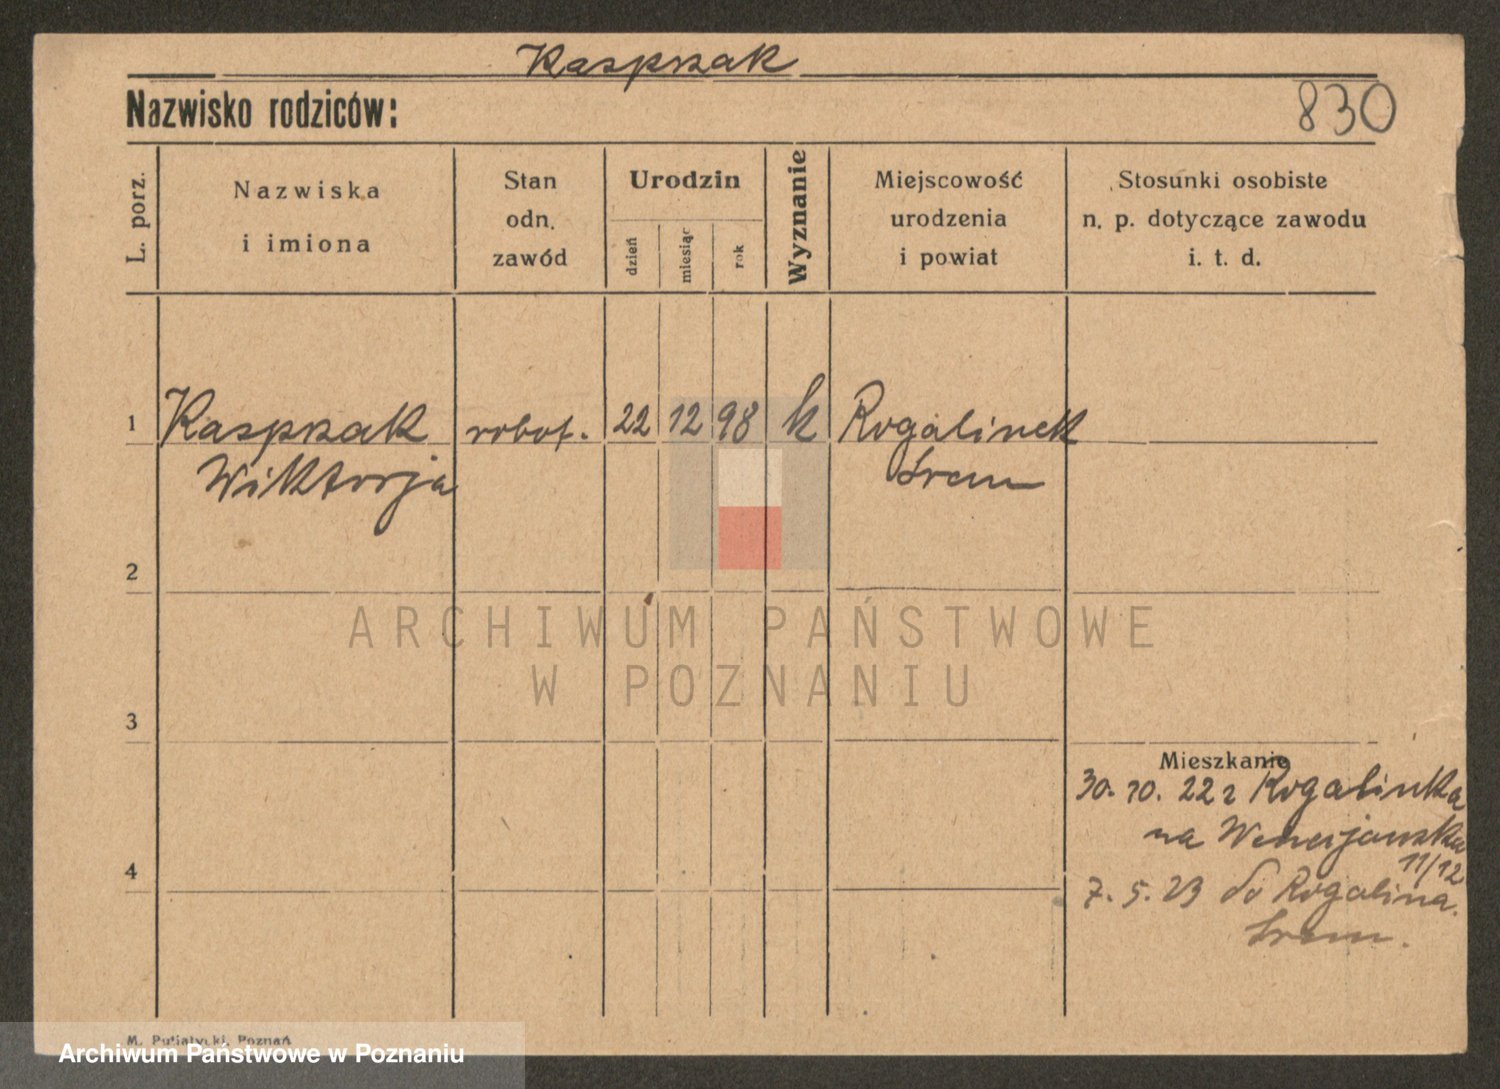 Kasprzak
Nazwisko rodziców:
830
L. porz.
Nazwiska
i imiona
Stan
odn.
zawód
Urodzin
dzień
miesiąc
rok
Wyznanie
Miejscowość
urodzenia
i powiat
Stosunki osobiste
n. p. dotyczące zawodu
i. t. d.
1 Kasprzak robot. 22 12 98 k Rogalinek
Wiktorja Śrem
2
ARCHIWUM PAŃSTWOWE
W POZNANIU
3
Mieszkanie
30. 10. 22 z Rogalinka
na
11/12
4
7. 5. 23 do Rogalina.
Śrem.
M. Putiatycki, Poznań
Archiwum Państwowe w Poznaniu